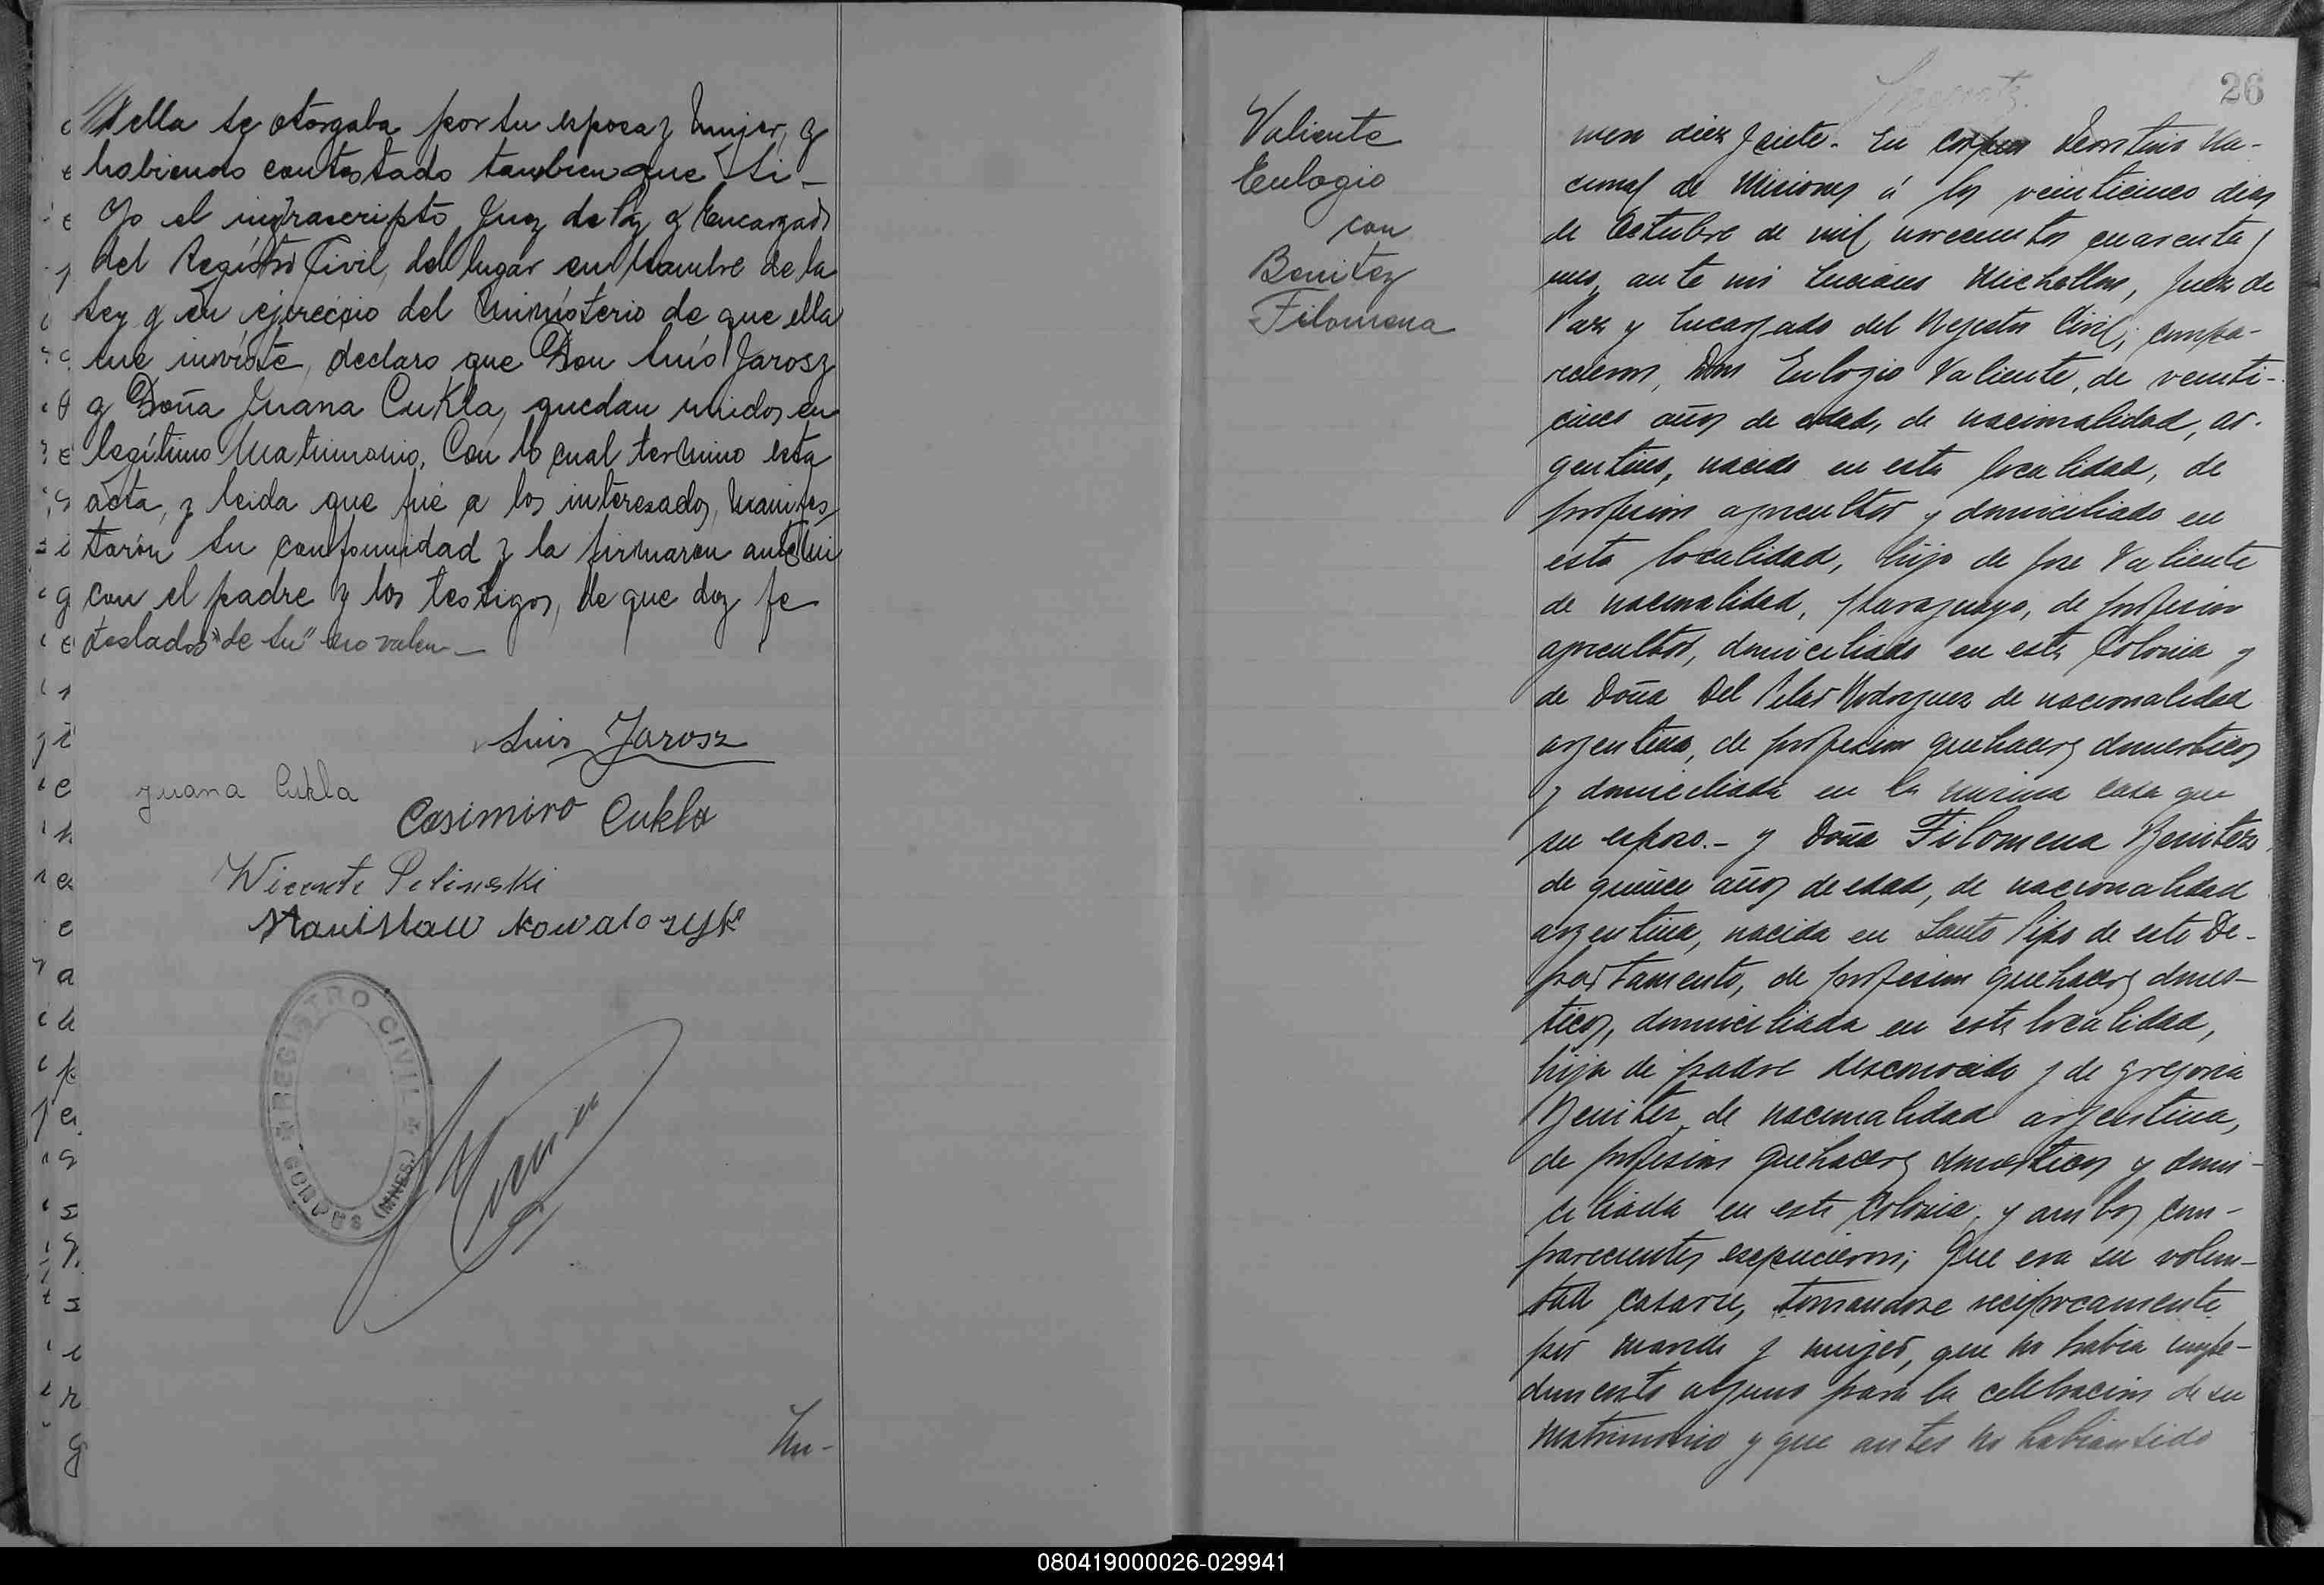 ella se otorgaba por su esposa y Mujer, y
habiendo contestado tambien que Si -
Yo el infrascripto Juez de Paz y Encargado
del Registro Civil, del lugar en Nombre de la
Ley y en ejercicio del Ministerio de que ella
me inviste, declaro que Don Luis Jarosz
y Doña Juana Cukla, quedan unidos en
legítimo Matrimonio. Con lo cual termino esta
acta, y leida que fué a los interesados, Manifes
tarón su conformidad y la firmaron ante Mi
con el padre y los testigos, de que doy fe
testados "de su" no valen -
Luis Jarosz
Juana Cukla
Casimiro Cukla
Vicente Pelinski
Stanisław Kowalczyk
REGISTRO CIVIL
CORPUS (MNES.)
Nu-
26
Valiente
Eulogio
con
Benitez
Filomena
mero diez y siete. En Corpus Territorio Na-
cional de Misiones á los veinticinco dias
de Octubre de mil novecientos cuarenta y
uno, ante mi Luciano Michellon, Juez de
Paz y Encargado del Registro Civil; compa-
recieron, Don Eulogio Valiente, de veinti-
cinco años de edad, de nacionalidad, ar-
gentino, nacido en esta localidad, de
profesion agricultor y domiciliado en
esta localidad, hijo de Jose Valiente
de nacionalidad, paraguayo, de profesion
agricultor, domiciliado en esta Colonia y
de Doña Del Pilar Rodriguez de nacionalidad
argentina, de profesion quehaceres domesticos
y domiciliada en la misma casa que
su esposo.- y Doña Filomena Benitez
de quince años de edad, de nacionalidad
argentina, nacida en Santo Pipo de este De-
partamento, de profesion quehaceres domes-
ticos, domiciliada en esta localidad,
hija de padre desconocido y de Gregoria
Benitez, de nacionalidad argentina,
de profesion quehaceres domesticos y domi-
ciliada en esta Colonia, y ambos com-
parecientes expusieron; Que era su volun-
tad casarse, tomandose reciprocamente
por marido y mujer, que no habia impe-
dimento alguno para la celebracion de su
Matrimonio y que antes no habian sido
080419000026-029941